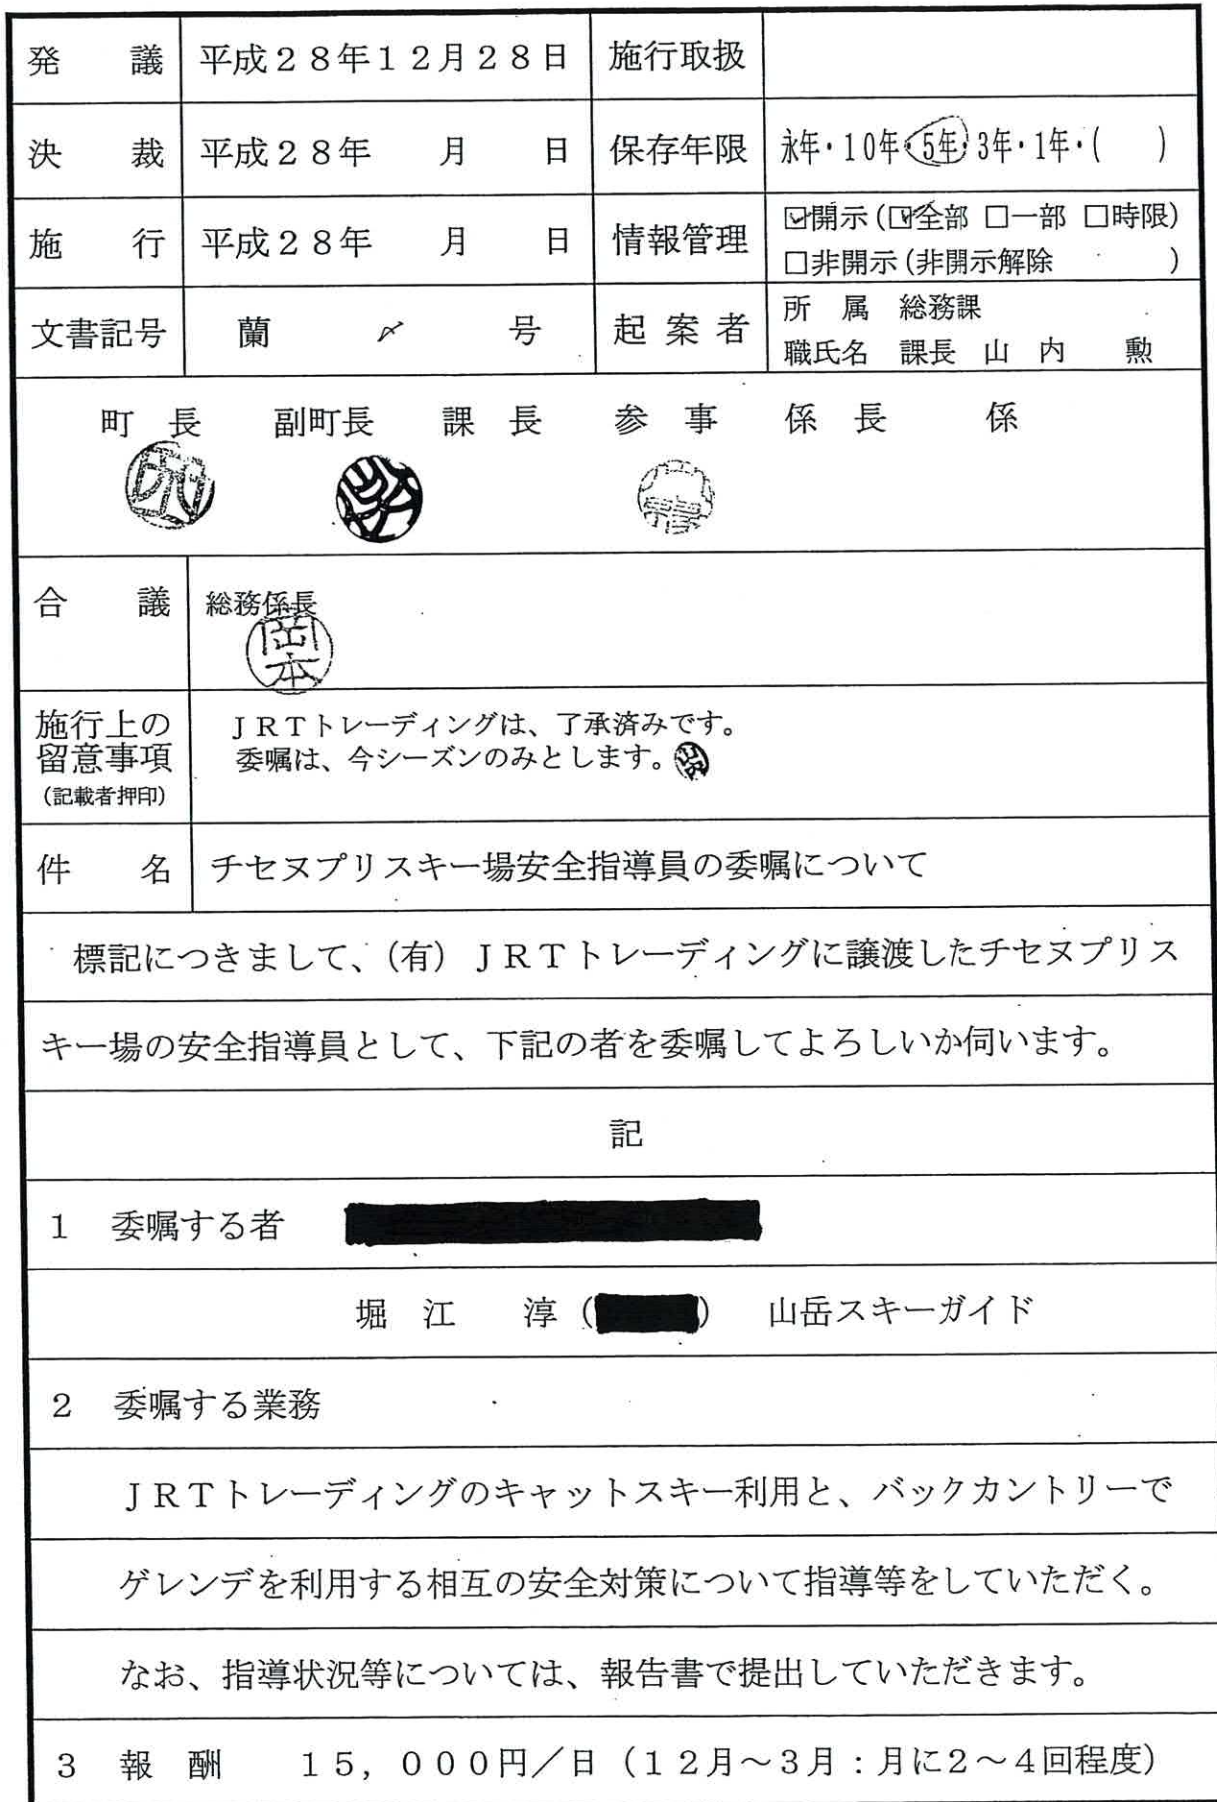 発　議　平成２８年１２月２８日　施行取扱
決　裁　平成２８年　　月　　日　保存年限　永年・10年・5年・3年・1年・(　　)
施　行　平成２８年　　月　　日　情報管理　☑開示(☑全部 □一部 □時限)
□非開示(非開示解除　　　)
文書記号　蘭　〆　号　起案者　所　属　総務課
職氏名　課長　山　内　　勲
町　長　副町長　課　長　参　事　係　長　係
合　議　総務係長
岡本
施行上の留意事項(記載者押印)　ＪＲＴトレーディングは、了承済みです。
委嘱は、今シーズンのみとします。
件　名　チセヌプリスキー場安全指導員の委嘱について
標記につきまして、(有)ＪＲＴトレーディングに譲渡したチセヌプリス
キー場の安全指導員として、下記の者を委嘱してよろしいか伺います。
記
１　委嘱する者
堀　江　　淳(　　　)　山岳スキーガイド
２　委嘱する業務
ＪＲＴトレーディングのキャットスキー利用と、バックカントリーで
ゲレンデを利用する相互の安全対策について指導等をしていただく。
なお、指導状況等については、報告書で提出していただきます。
３　報　酬　　１５，０００円／日（１２月～３月：月に２～４回程度）